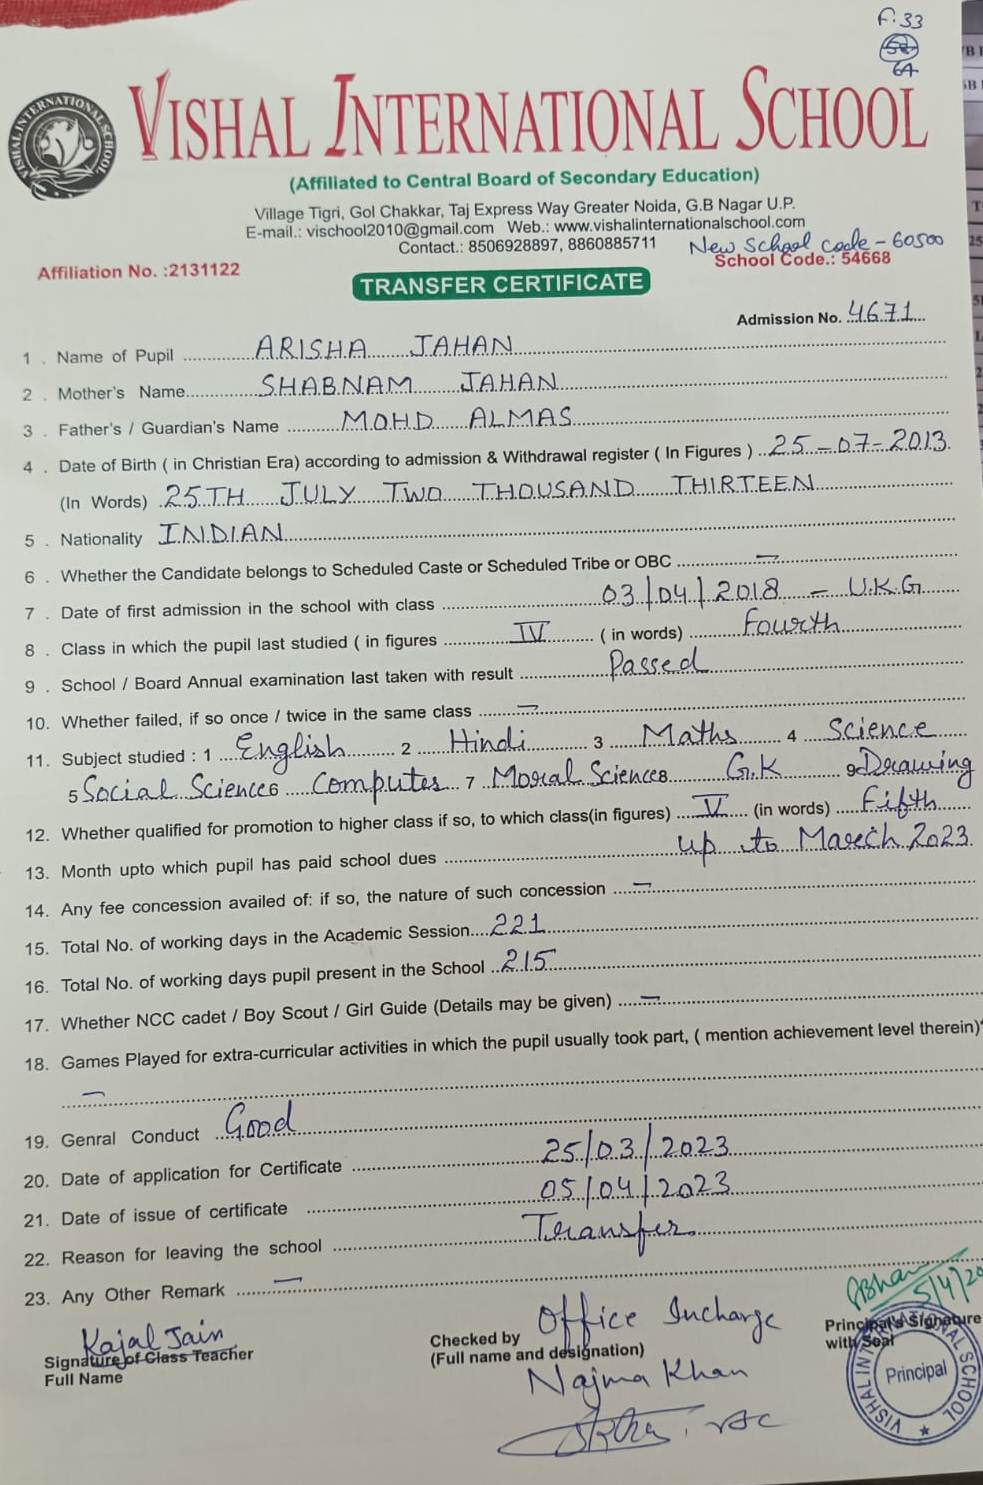 F.33
64
VISHAL INTERNATIONAL SCHOOL
VISHAL INTERNATIONAL SCHOOL
(Affiliated to Central Board of Secondary Education)
Village Tigri, Gol Chakkar, Taj Express Way Greater Noida, G.B Nagar U.P.
E-mail.: vischool2010@gmail.com Web.: www.vishalinternationalschool.com
Contact.: 8506928897, 8860885711
New School code - 60500
Affiliation No. :2131122 School Code.: 54668
TRANSFER CERTIFICATE
Admission No. 4671
1 . Name of Pupil ARISHA JAHAN
2 . Mother's Name SHABNAM JAHAN
3 . Father's / Guardian's Name MOHD ALMAS
4 . Date of Birth ( in Christian Era) according to admission & Withdrawal register ( In Figures ) 25-07-2013
(In Words) 25TH JULY TWO THOUSAND THIRTEEN
5 . Nationality INDIAN
6 . Whether the Candidate belongs to Scheduled Caste or Scheduled Tribe or OBC —
7 . Date of first admission in the school with class 03/04/2018 - U.K.G
8 . Class in which the pupil last studied ( in figures IV ( in words) Fourth
9 . School / Board Annual examination last taken with result Passed
10. Whether failed, if so once / twice in the same class —
11. Subject studied : 1 English 2 Hindi 3 Maths 4 Science
5 Social Science 6 Computer 7 Moral Science 8 G.K 9 Drawing
12. Whether qualified for promotion to higher class if so, to which class(in figures) V (in words) Fifth
13. Month upto which pupil has paid school dues up to March 2023
14. Any fee concession availed of: if so, the nature of such concession —
15. Total No. of working days in the Academic Session 221
16. Total No. of working days pupil present in the School 215
17. Whether NCC cadet / Boy Scout / Girl Guide (Details may be given) —
18. Games Played for extra-curricular activities in which the pupil usually took part, ( mention achievement level therein)
—
19. Genral Conduct Good
20. Date of application for Certificate 25/03/2023
21. Date of issue of certificate 05/04/2023
22. Reason for leaving the school Transfer
23. Any Other Remark —
Kajal Jain
Signature of Class Teacher
Full Name
Office Incharge
Checked by
(Full name and designation)
Najma Khan
5/4/20
Principal's Signature
with Seal
VISHAL INTERNATIONAL SCHOOL
Principal